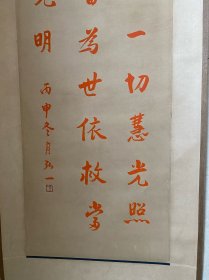 一切慧光照
為世依救當
光明
丙申冬月弘一